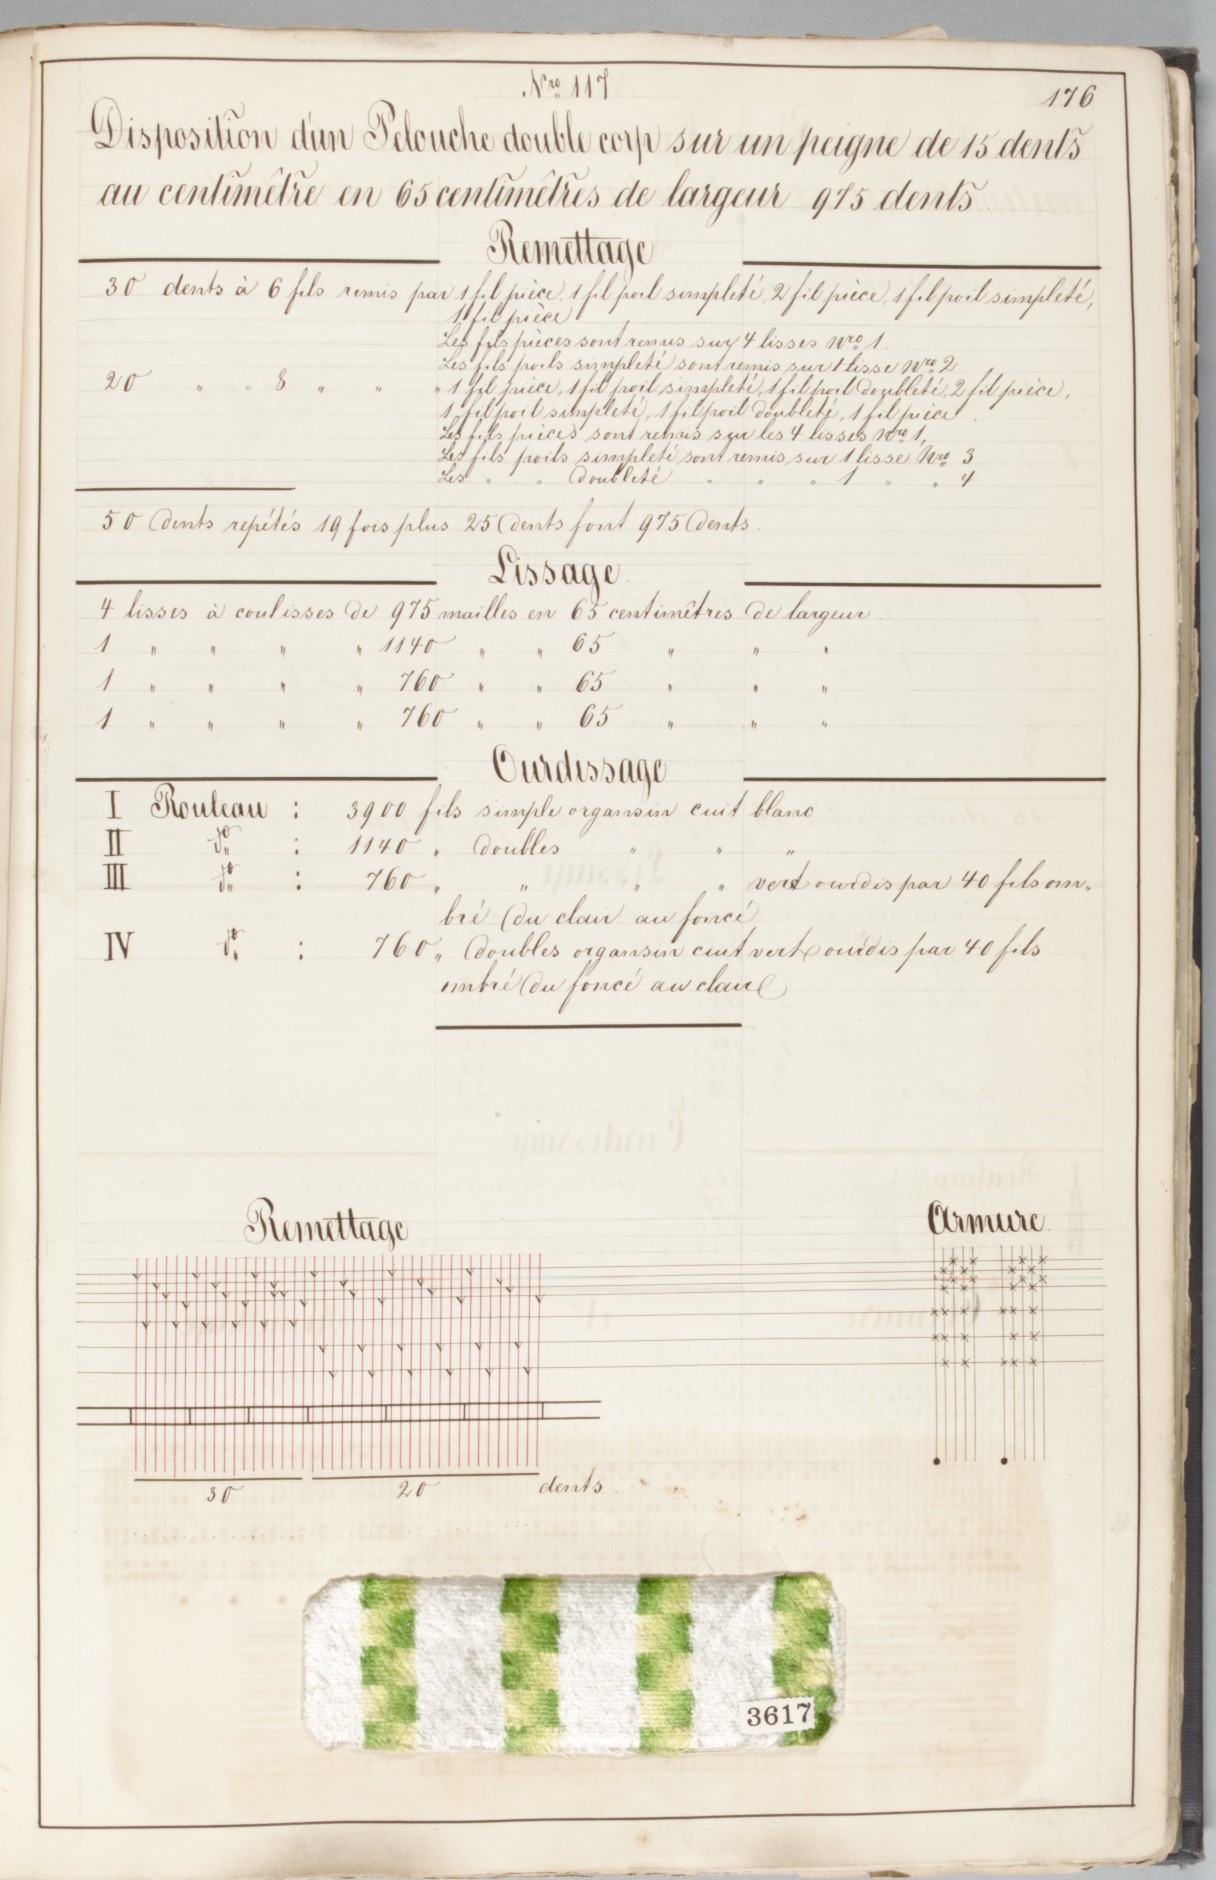 Nro 117
176
Disposition d'un Pelouche double corp sur un peigne de 15 dents
au centimêtre en 65 centimêtres de largeur 975 dents
Remettage
30 dents à 6 fils remis par 1 fil pièce, 1 fil poil simpleté, 2 fil pièce, 1 fil poil simpleté,
1 fil pièce
Les fils pièces sont remis sur 4 lisses Nro 1.
Les fils poils simpleté sont remis sur 1 lisse Nro 2
20 " " 8 " " " 1 fil pièce, 1 fil poil simpleté, 1 fil poil doubleté, 2 fil pièce,
1 fil poil simpleté, 1 fil poil doubleté, 1 fil pièce.
Les fils pièces sont remis sur les 4 lisses Nro 1,
Les fils poils simpleté sont remis sur 1 lisse Nro 3
Les " " doubleté " " " 1 " " 4
50 dents repétés 19 fois plus 25 dents font 975 dents.
Lissage.
4 lisses à coulisses de 975 mailles en 65 centimêtres de largeur.
1 " " " " 1140 " " 65 " " "
1 " " " " 760 " " 65 " " "
1 " " " " 760 " " 65 " " "
Ourdissage
I Rouleau : 3900 fils simple organsin cuit blanc
II do : 1140 " doubles " " "
III do : 760 " " " " vert ourdis par 40 fils om-
bré du clair au foncé
IV do : 760 " doubles organsin cuit vert ourdis par 40 fils
ombré du foncé au clair
Remettage
Armure.
30 20 dents.
3617